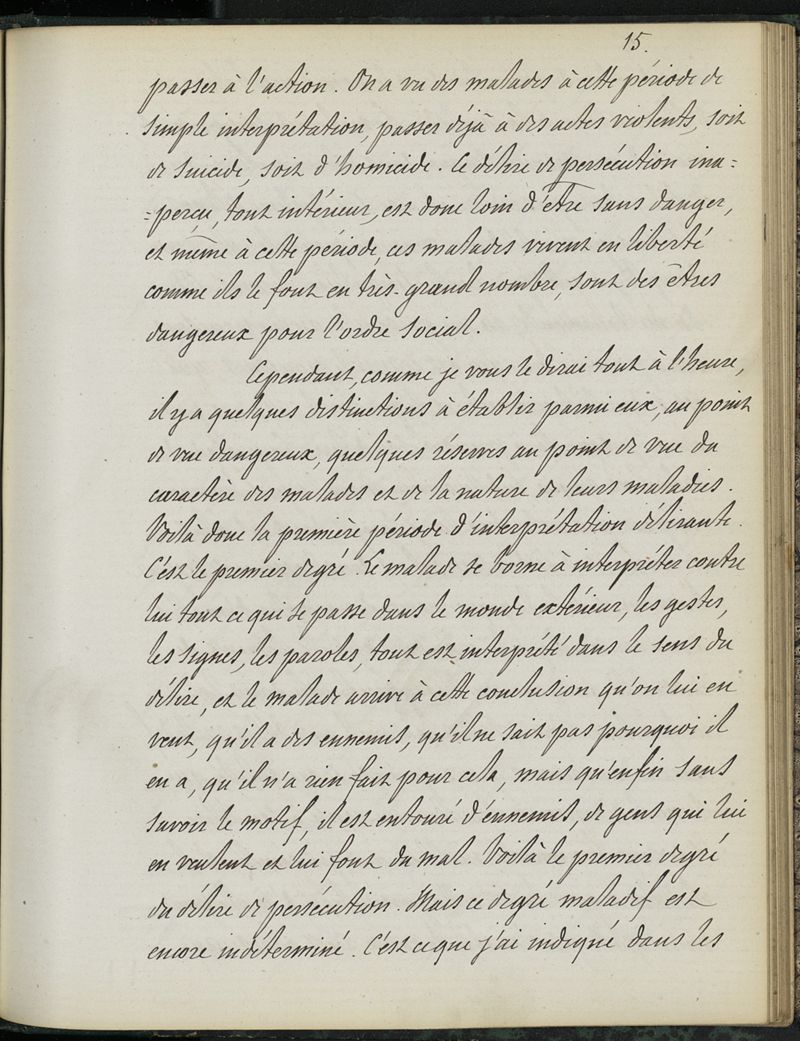 15.
passer à l'action. On a vu des malades à cette période de
simple interprétation, passer déjà à des actes violents, soit
de suicide, soit d'homicide. Ce délire de persécution ina=
=perçu, tout intérieur, est donc loin d'être sans danger,
et même à cette période, ces malades vivent en liberté
comme ils le font en très-grand nombre, sont des êtres
dangereux pour l'ordre social.
Cependant, comme je vous le dirai tout à l'heure,
il y a quelques distinctions à établir parmi eux, au point
de vue dangereux, quelques réserves au point de vue du
caractère des malades et de la nature de leurs maladies.
Voilà donc la première période d'interprétation délirante.
C'est le premier degré. Le malade se borne à interpréter contre
lui tout ce qui se passe dans le monde extérieur, les gestes,
les signes, les paroles, tout est interprété dans le sens du
délire, et le malade arrive à cette conclusion qu'on lui en
veut, qu'il a des ennemis, qu'il ne sait pas pourquoi il
en a, qu'il n'a rien fait pour cela, mais qu'enfin sans
savoir le motif, il est entouré d'ennemis, de gens qui lui
en veulent et lui font du mal. Voilà le premier degré
du délire de persécution. Mais ce degré maladif est
encore indéterminé. C'est ce que j'ai indiqué dans les